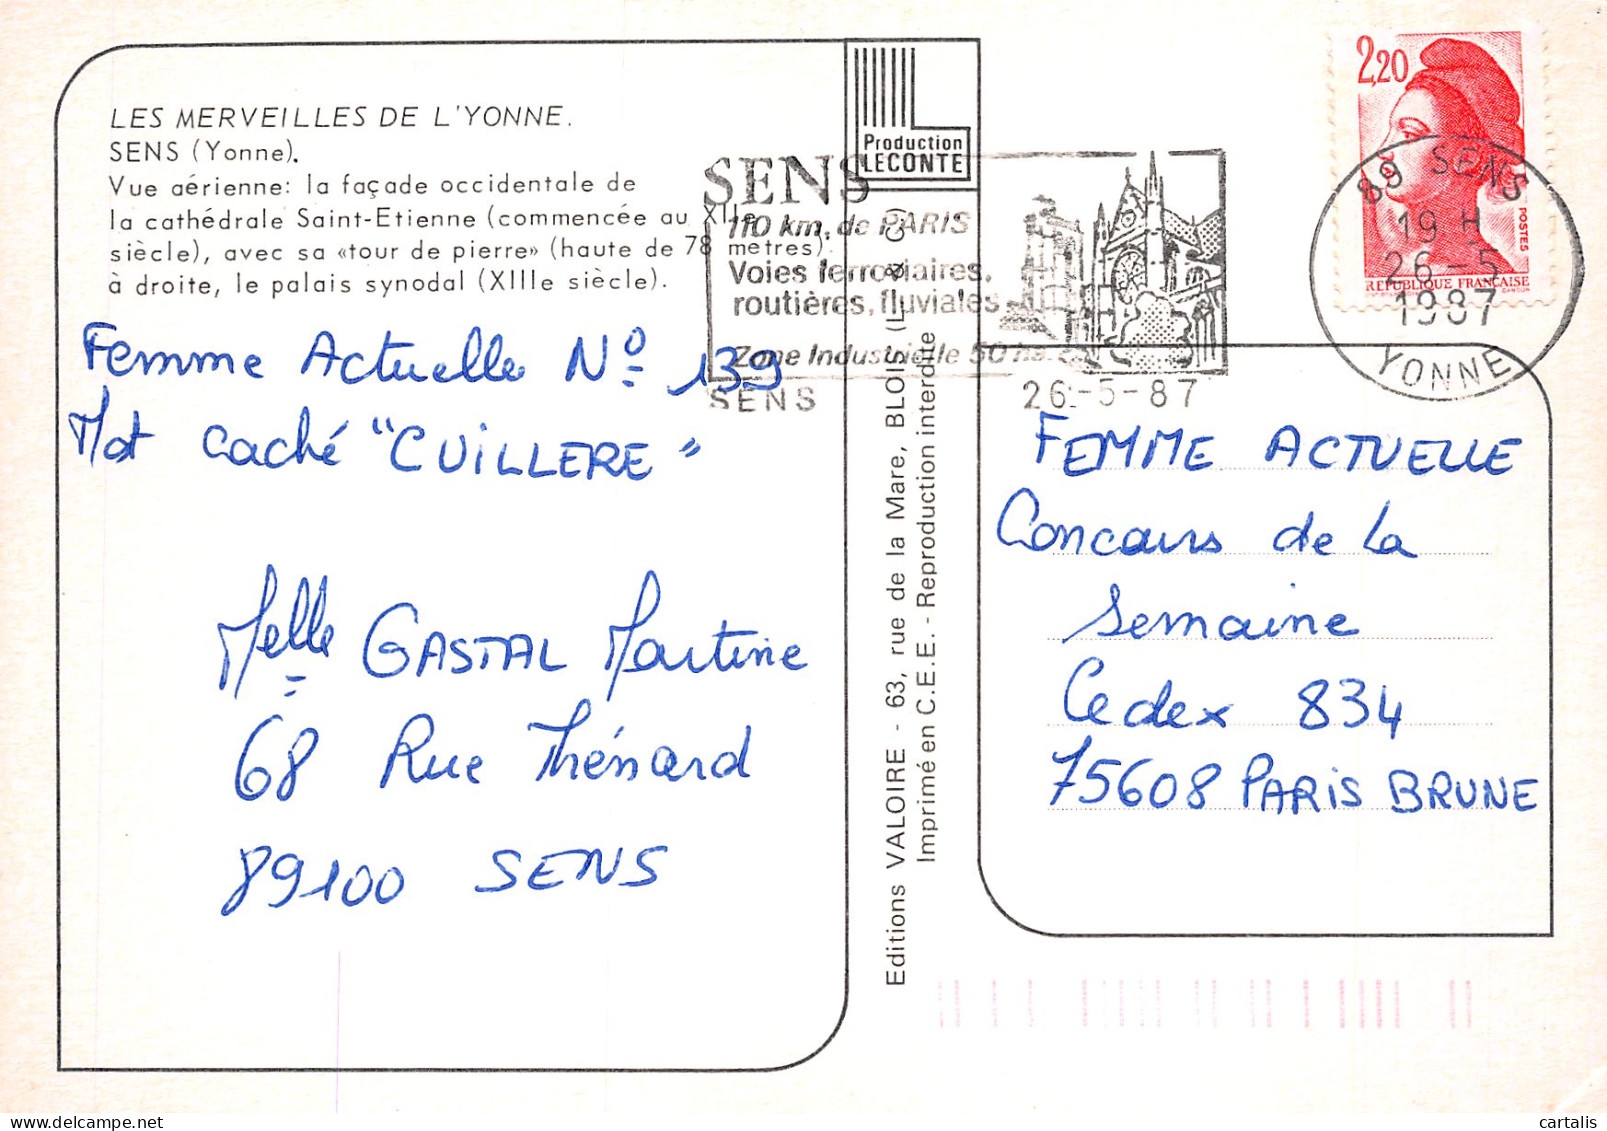 LES MERVEILLES DE L'YONNE.
SENS (Yonne).
Vue aérienne: la façade occidentale de
la cathédrale Saint-Etienne (commencée au XIIe
siècle), avec sa «tour de pierre» (haute de 78 metres).
à droite, le palais synodal (XIIIe siècle).
Femme Actuelle Nº 139
Mot caché "CUILLERE"
Melle GASTAL Martine
68 Rue Thénard
89100 SENS
Production
LECONTE
SENS
110 km. de PARIS
Voies ferroviaires,
routières, fluviales
Zone Industrielle 50 ha.
SENS
26-5-87
2,20
POSTES
REPUBLIQUE FRANÇAISE
GANDON
89 SENS
19 H
26-5
1987
YONNE
Editions VALOIRE - 63, rue de la Mare, BLOIS (L. & C.)
Imprimé en C.E.E. - Reproduction interdite
FEMME ACTUELLE
Concours de la
Semaine
Cedex 834
75608 PARIS BRUNE
cartalis